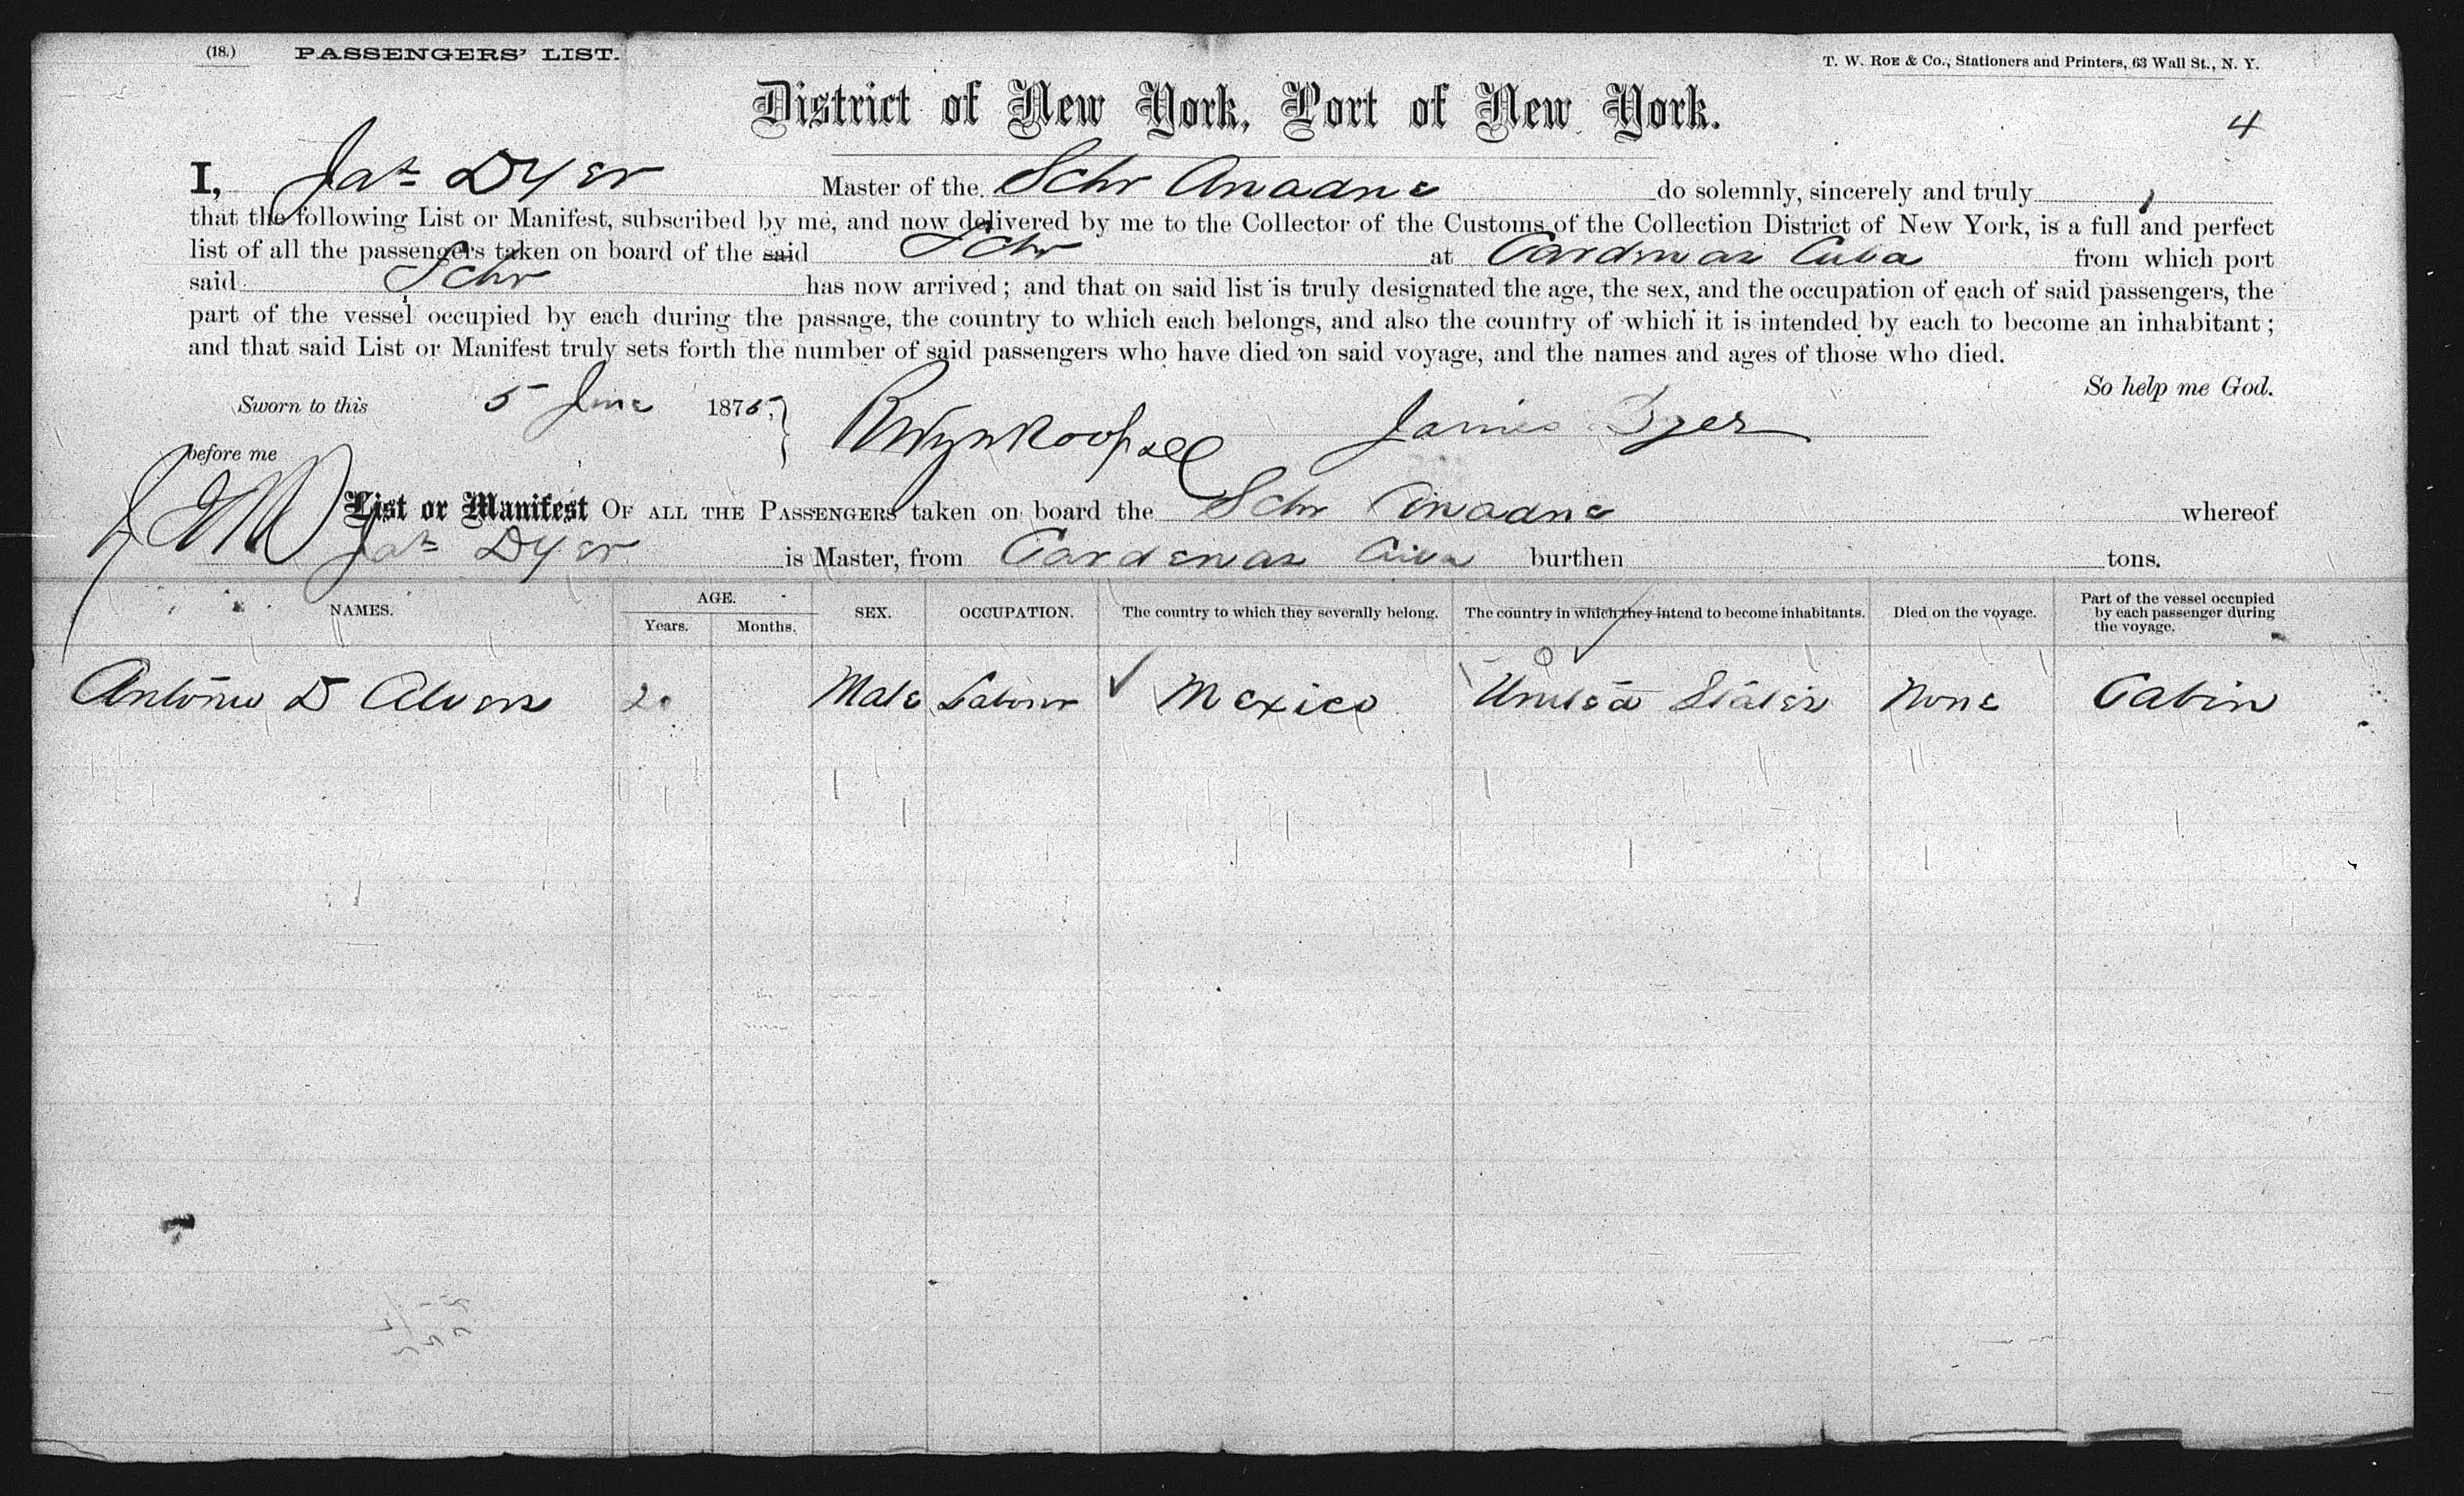 (18.) PASSENGERS' LIST.
T. W. ROE & Co., Stationers and Printers, 63 Wall St., N. Y.
District of New York, Port of New York.
4
I, Jas Dyer Master of the Schr Anadne do solemnly, sincerely and truly
that the following List or Manifest, subscribed by me, and now delivered by me to the Collector of the Customs of the Collection District of New York, is a full and perfect
list of all the passengers taken on board of the said Schr at Cardenas Cuba from which port
said Schr has now arrived; and that on said list is truly designated the age, the sex, and the occupation of each of said passengers, the
part of the vessel occupied by each during the passage, the country to which each belongs, and also the country of which it is intended by each to become an inhabitant;
and that said List or Manifest truly sets forth the number of said passengers who have died on said voyage, and the names and ages of those who died.
So help me God.
Sworn to this 5 June 1875, James Dyer
before me
List or Manifest OF ALL THE PASSENGERS taken on board the Schr Anadne whereof
Jas Dyer is Master, from Cardenas Cuba burthen tons.
NAMES. AGE. Years. Months. SEX. OCCUPATION. The country to which they severally belong. The country in which they intend to become inhabitants. Died on the voyage. Part of the vessel occupied by each passenger during the voyage.
Antonio D Alvers 20 Male Laborer Mexico United States None Cabin